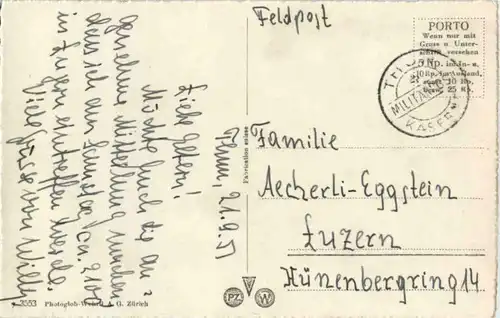 Thun, 21.9.51
Liebe Eltern!
Möchte Euch die an-
genehme Mitteilung machen
dass ich am Samstag ca. 3/4
in Luzern eintreffen werde.
Viele Grüsse von Willy
3553 Photoglob-Wehrli A. G. Zürich
Fabrication suisse
PZ W
Feldpost
PORTO
Wenn nur mit
Gruss u. Unter-
schrift versehen
Rp. im In- u.
10 Rp. im Ausland,
sonst 10 Rp.
bezw. 25 Rp.
THUN
MILITÄR
KASERNE
Familie
Aecherli-Eggstein
Luzern
Hünenbergring 14